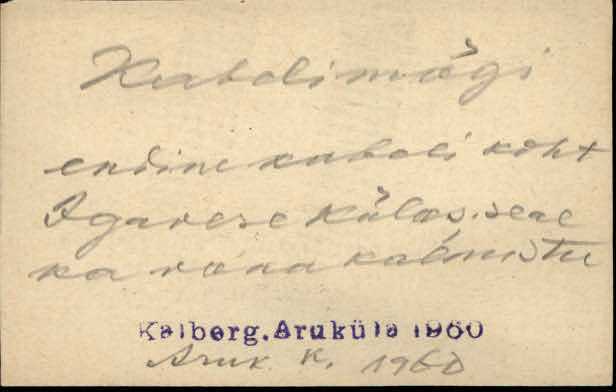 Kabelimägi
endine kabeli koht
Igavere külas, seal
ka vana kalmistu
Kalberg. Aruküla 1960
Aruk. K. 1960